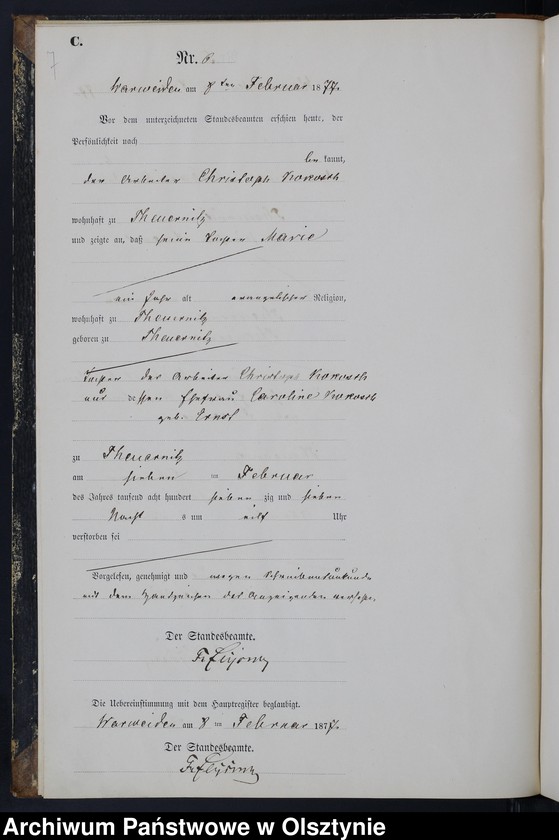 C.
7
Nr. 6.
Warweiden am 8ten Februar 1877.
Vor dem unterzeichneten Standesbeamten erschien heute, der
Persönlichkeit nach
bekannt,
der Arbeiter Christoph Kokosch
wohnhaft zu Theuernitz
und zeigte an, daß seine Tochter Marie
ein Jahr alt evangelischer Religion,
wohnhaft zu Theuernitz
geboren zu Theuernitz
Tochter des Arbeiter Christoph Kokosch
und dessen Ehefrau Caroline Kokosch
geb. Ernst
zu Theuernitz
am sieben ten Februar
des Jahres tausend acht hundert siebenzig und sieben
Nachts um elf Uhr
verstorben sei
Vorgelesen, genehmigt und wegen Schreibensunkunde
mit dem Handzeichen des Anzeigenden versehen.
Der Standesbeamte.
Die Uebereinstimmung mit dem Hauptregister beglaubigt.
Warweiden am 8ten Februar 1877.
Der Standesbeamte.
Archiwum Państwowe w Olsztynie